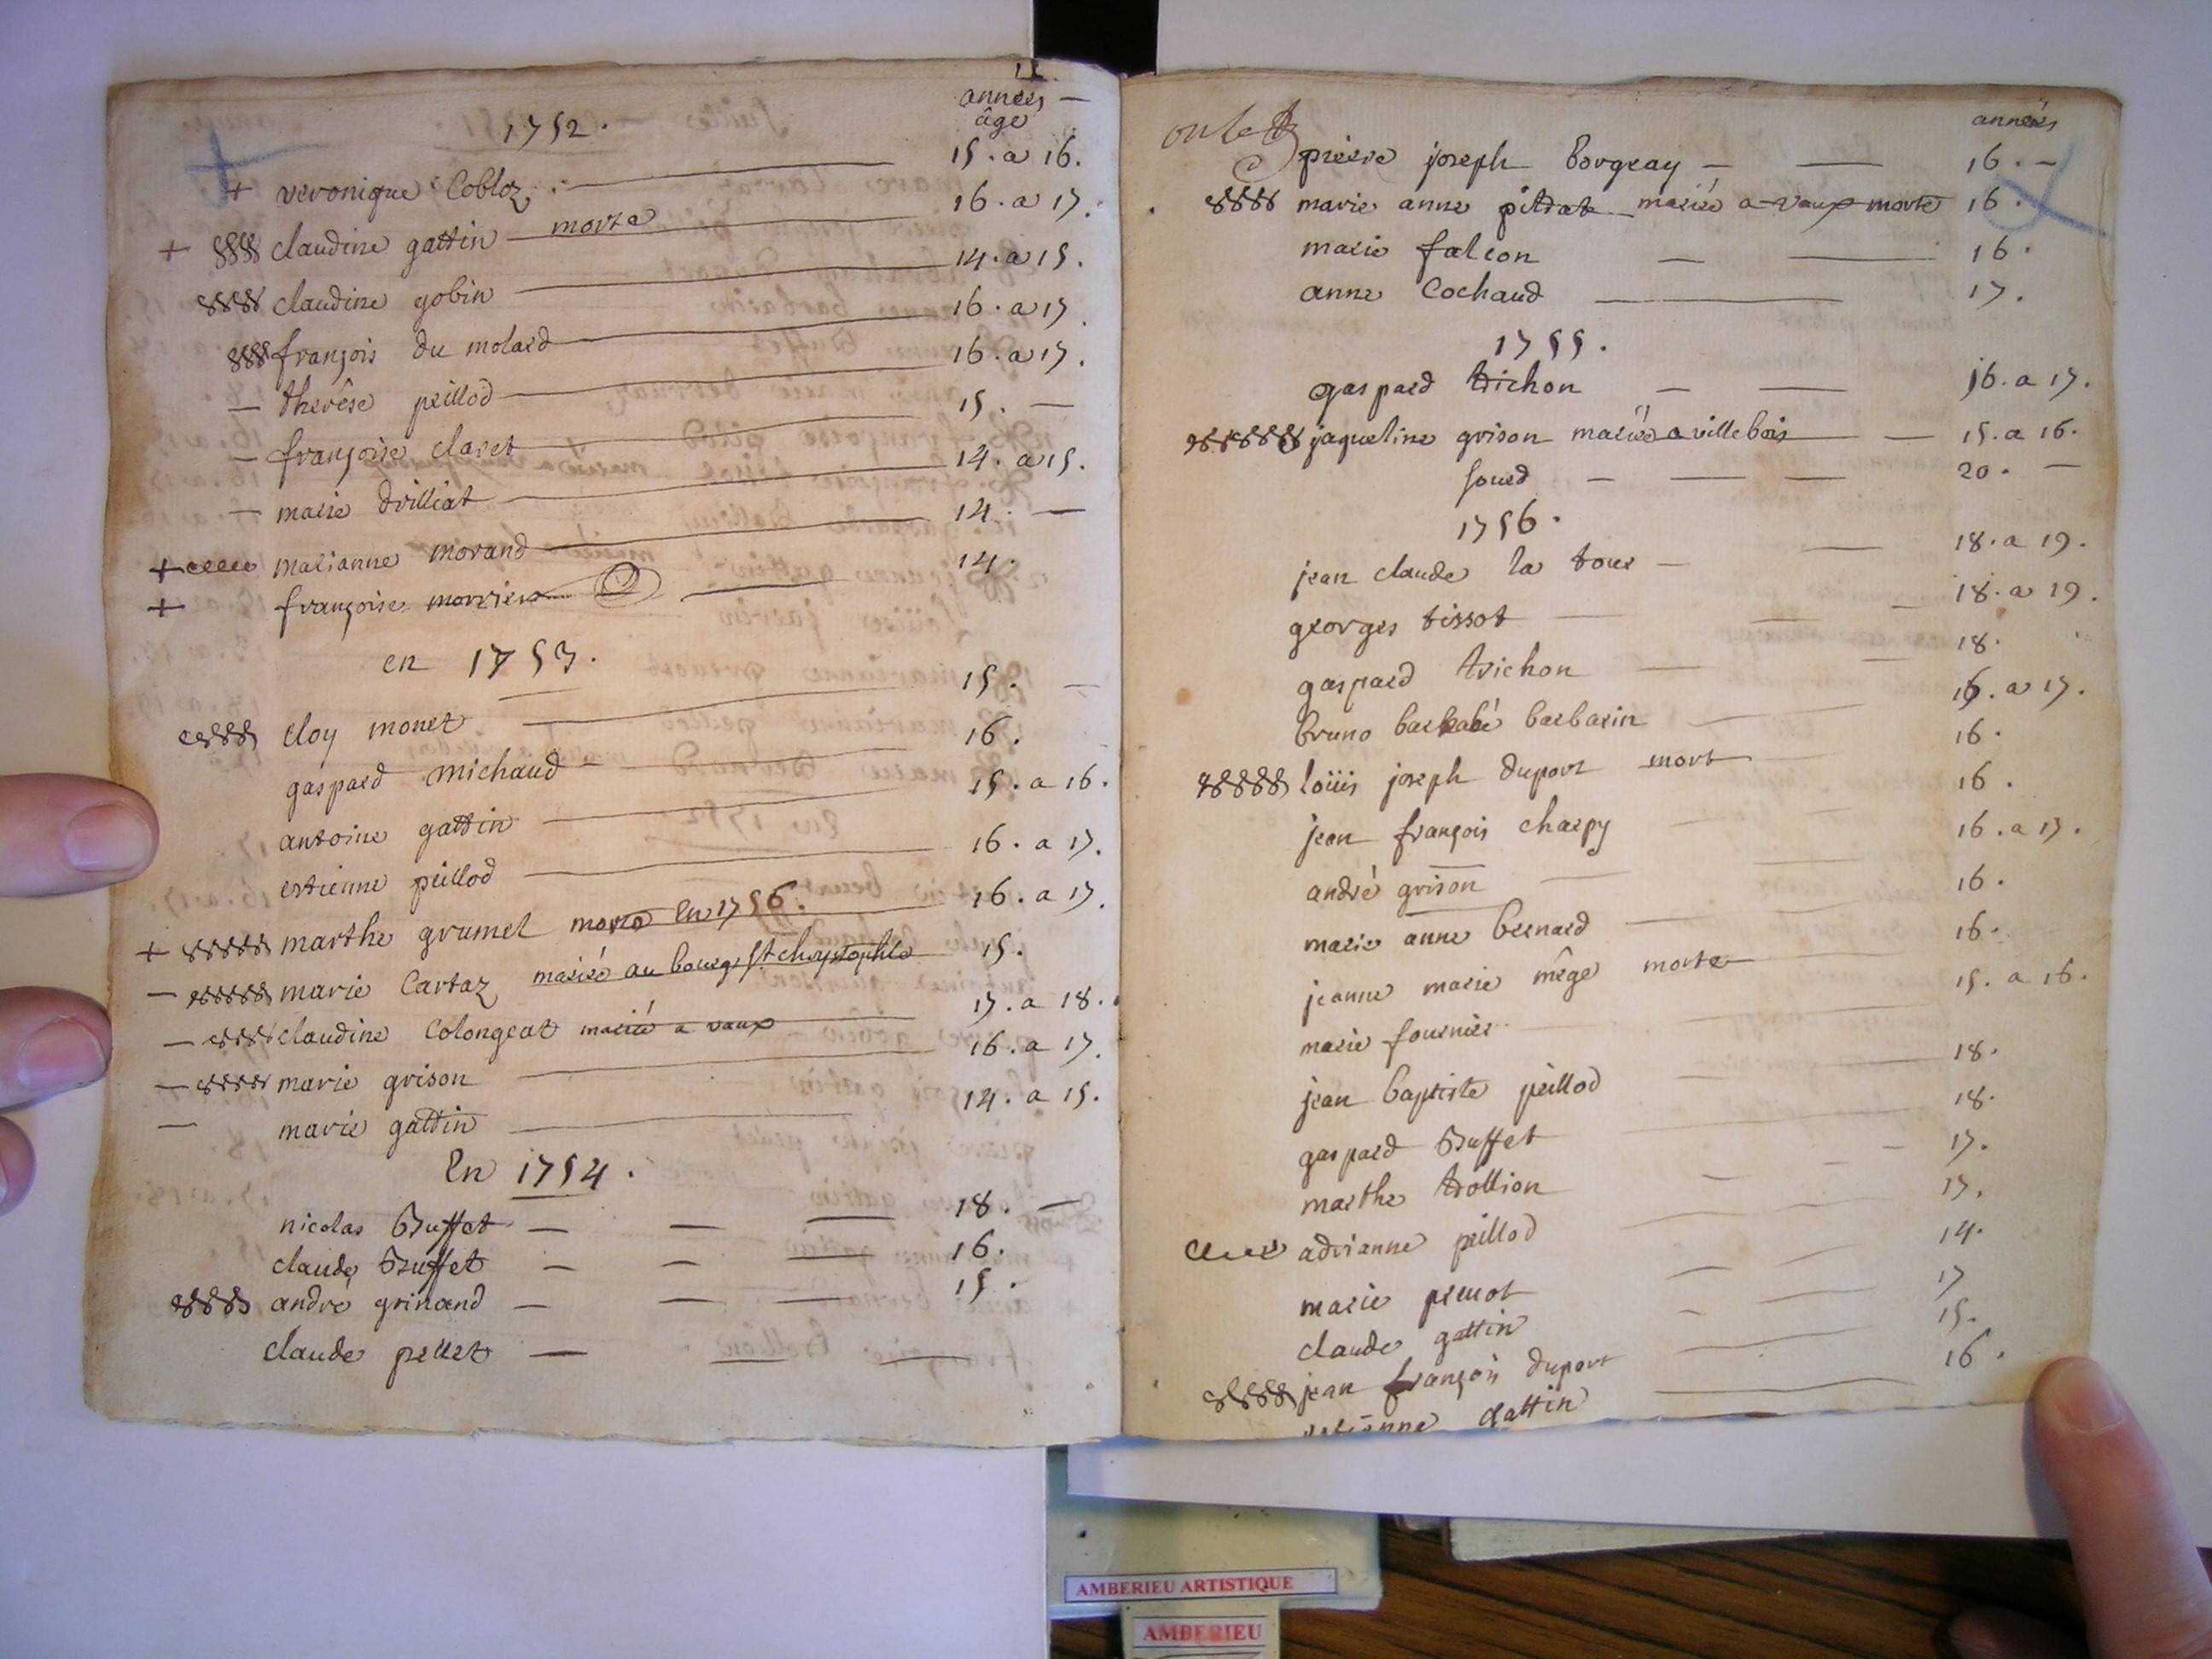 années —
1752. âge
+ veronique Cobloz 15. a 16.
+ claudine gattin morte 16. a 17.
claudine gobin 14. a 15.
françois du molard 16. a 17.
— therêse peillod 16. a 17.
— françoise claret 15. —
— marie drilliat 14. a 15.
+ marianne morand 14. —
+ françoise 14.
en 1753.
eloy monet 15. —
gaspard michaud 16.
antoine gattin 15. a 16.
estienne peillod 16. a 17.
+ marthe grumet morte en 1756. 16. a 17.
— marie Cartaz mariée au bourg St chrystophle 15.
— claudine Colongeat mariée a vaux 17. a 18.
— marie grison 16. a 17.
— marie gattin 14. a 15.
En 1754.
nicolas Buffet — — — 18. —
claude Buffet — — — 16.
andré grinand — — — 15.
claude pellet — — —
années
pierre joseph Borgeay — — 16. —
marie anne pitrat mariée a vaux morte 16.
marie falcon — — 16.
anne Cochaud — 17.
1755.
gaspard trichon — — 16. a 17.
jaqueline grison mariée a villebois — 15. a 16.
soued — — — 20. —
1756.
jean claude la tour — — 18. a 19.
georges tissot — — — 18. a 19.
gaspard trichon — — 18.
bruno barnabé barbarin — 16. a 17.
loüis joseph duport mort 16.
jean françois charpy 16.
andré grison 16. a 17.
marie anne bernard 16.
jeanne marie mêge morte 16.
marie fournier 15. a 16.
jean baptiste peillod 18.
gaspard Buffet 18.
marthe trollion 17.
adrianne peillod 17.
marie 14.
claude gattin 17
jean françois duport 15.
estienne gattin 16.
AMBERIEU ARTISTIQUE
AMBERIEU